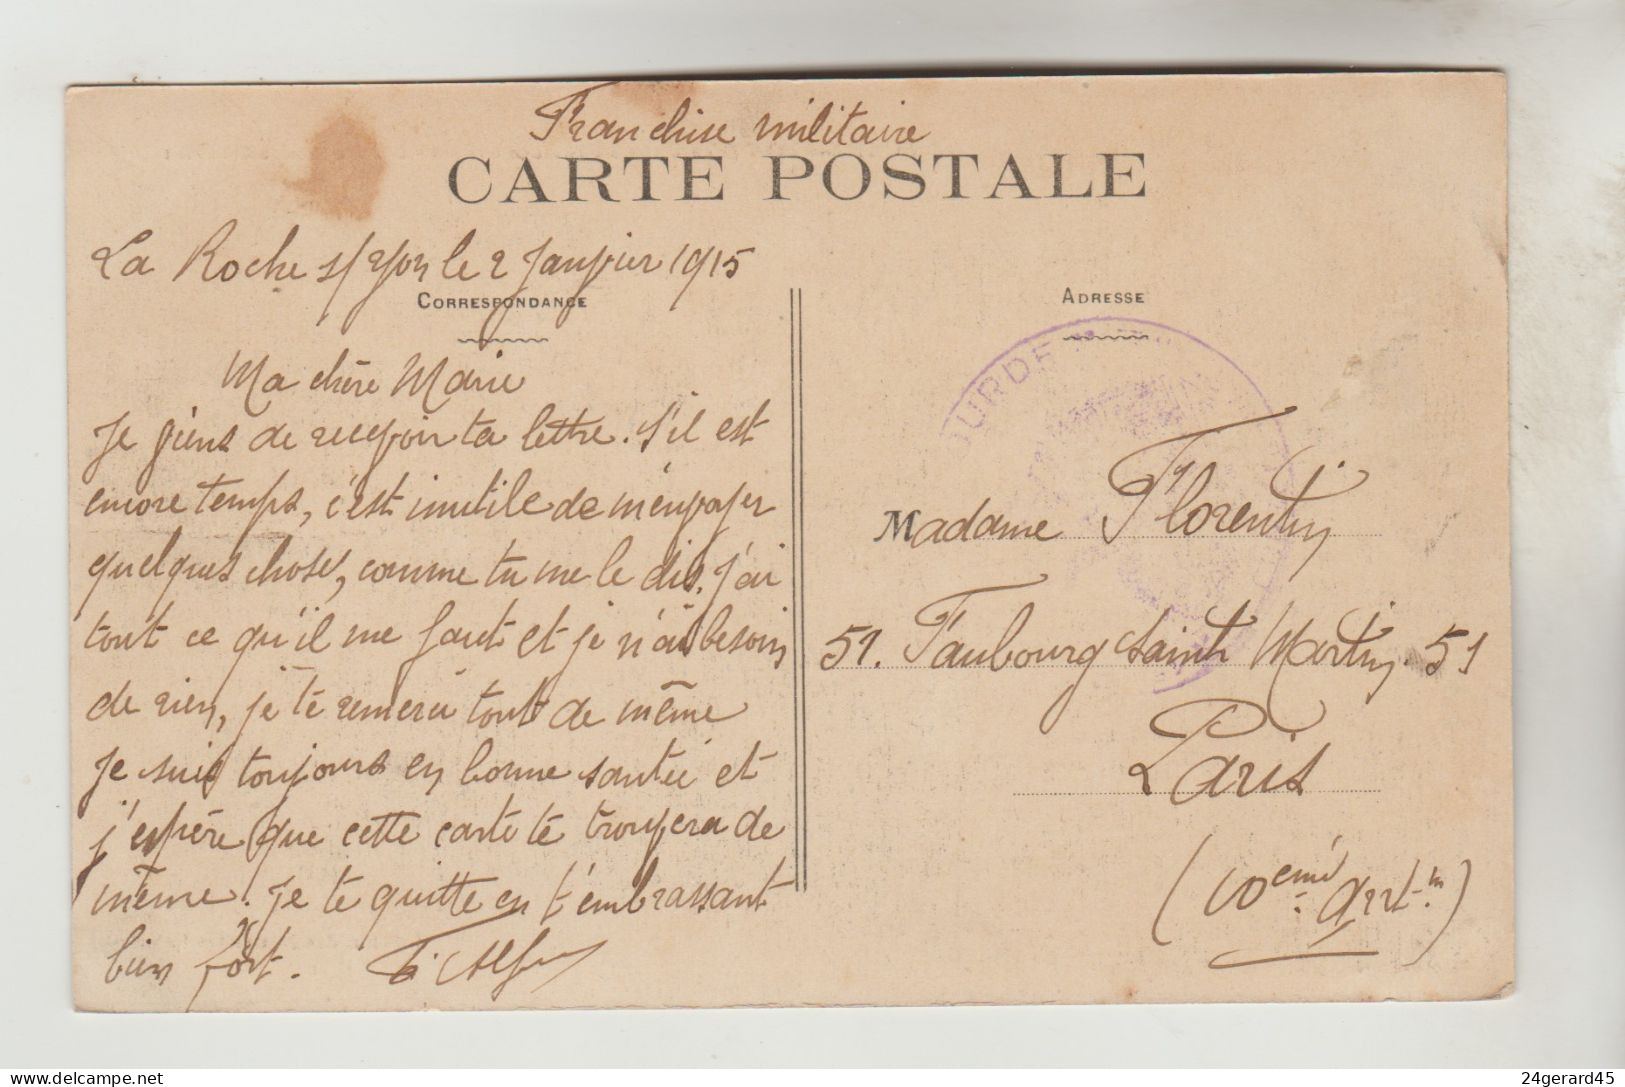 Franchise militaire
CARTE POSTALE
La Roche s/Yon le 2 Janvier 1915
CORRESPONDANCE
Ma chère Marie
Je viens de recevoir ta lettre. S'il est
encore temps, c'est inutile de m'envoyer
quelques chose, comme tu me le dis. J'ai
tout ce qu'il me faut et je n'ai besoin
de rien, je te remercie tout de même
Je suis toujours en bonne santée et
j'espère que cette carte te trouvera de
même. Je te quitte en t'embrassant
bien fort.
ADRESSE
Madame Florentin
51. Faubourg Saint Martin. 51
Paris
(10eme arrt)
24gerard45
delcampe.net